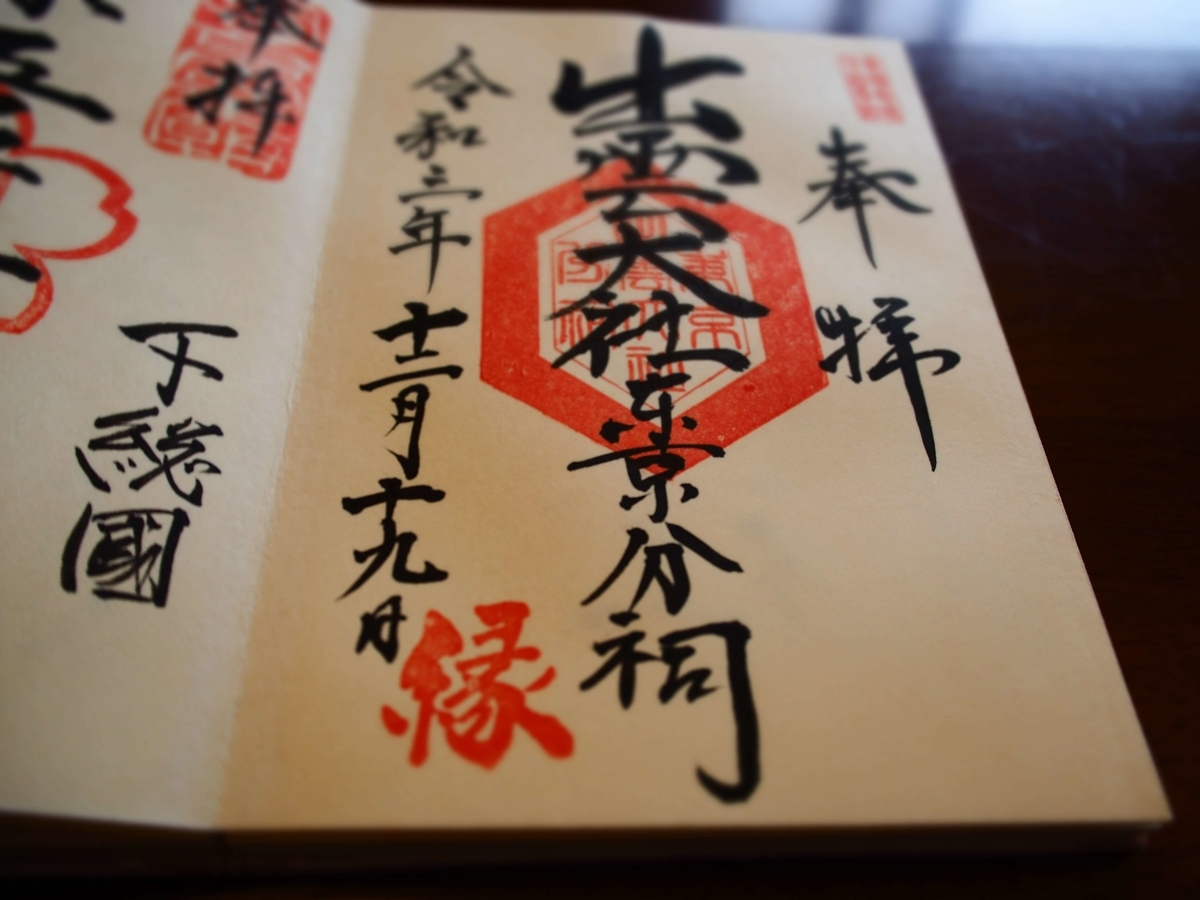 奉拝
出雲大社東京分祠
令和三年十二月十九日
縁
奉拝
下総國